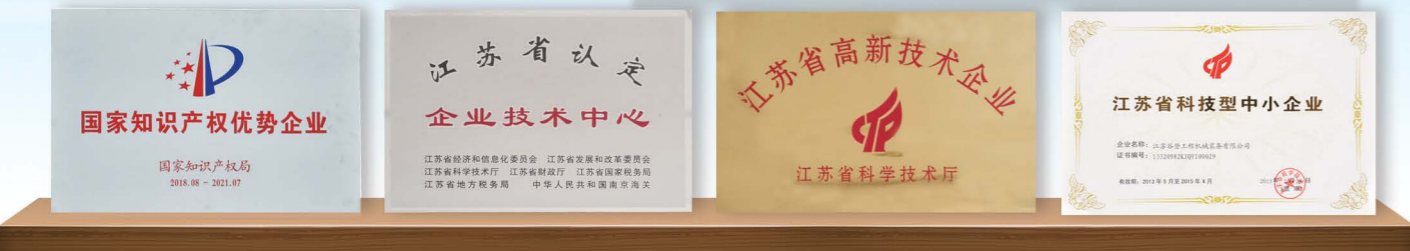 国家知识产权优势企业
国家知识产权局
2018.08 - 2021.07
江苏省认定
企业技术中心
江苏省经济和信息化委员会 江苏省发展和改革委员会
江苏省科学技术厅 江苏省财政厅 江苏省国家税务局
江苏省地方税务局 中华人民共和国南京海关
江苏省高新技术企业
江苏省科学技术厅
江苏省科技型中小企业
企业名称：江苏谷登工程机械装备有限公司
证书编号：
有效期：2013 年 5 月至 2015 年 4 月